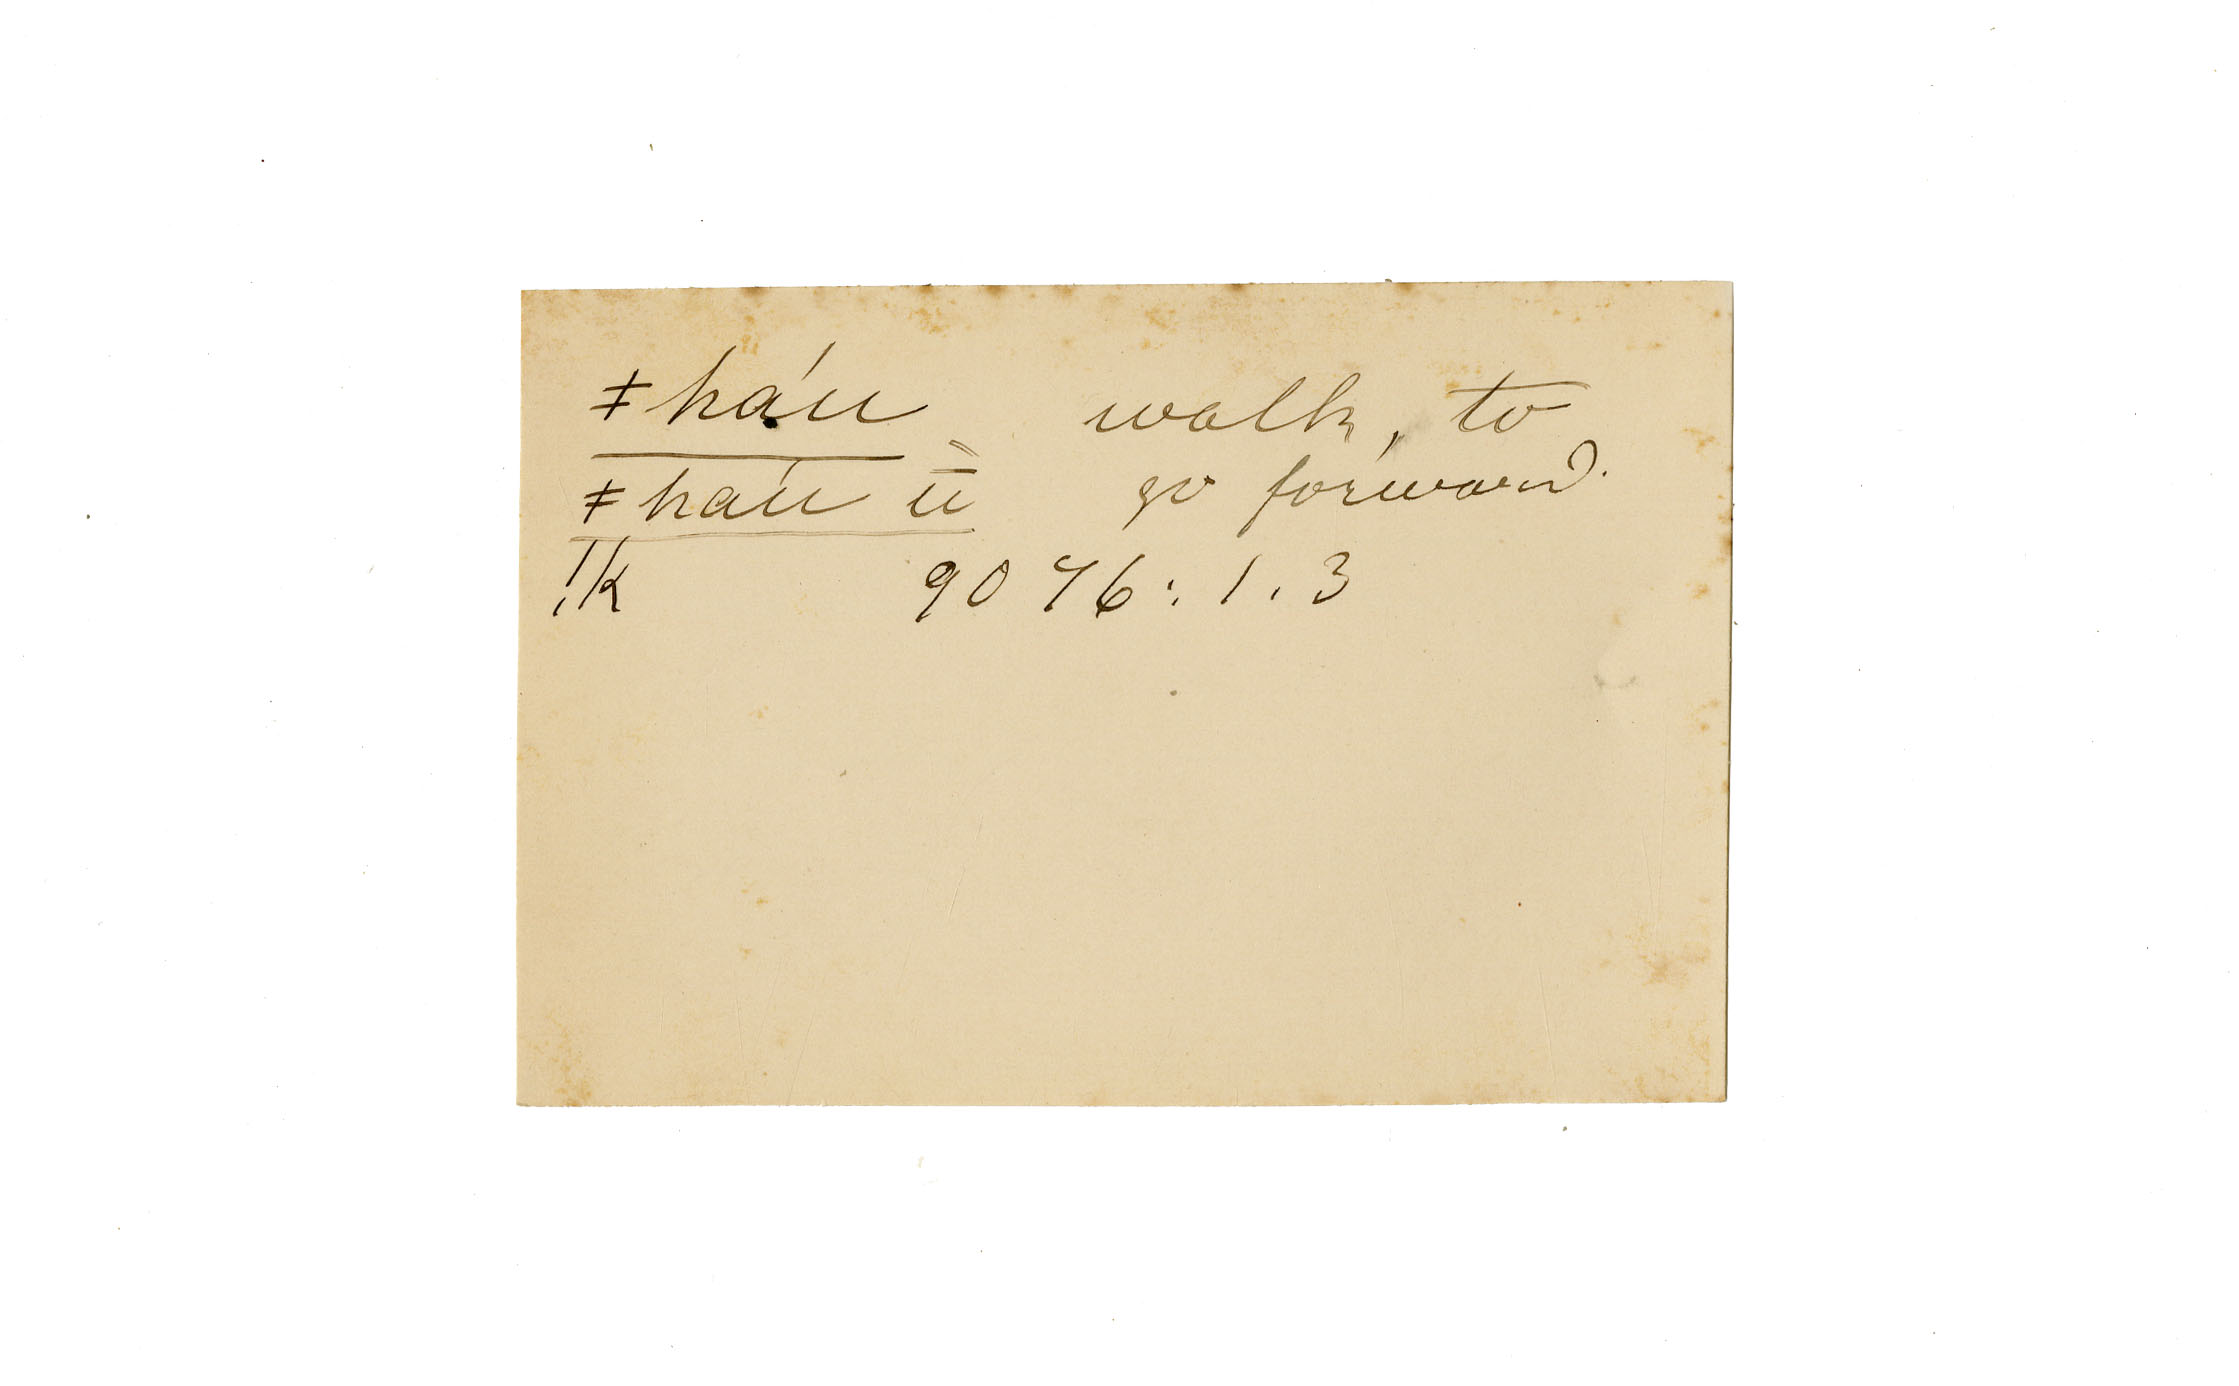 ǂháu walk, to
ǂháu ū̀ go forward.
!k 9076:1.3